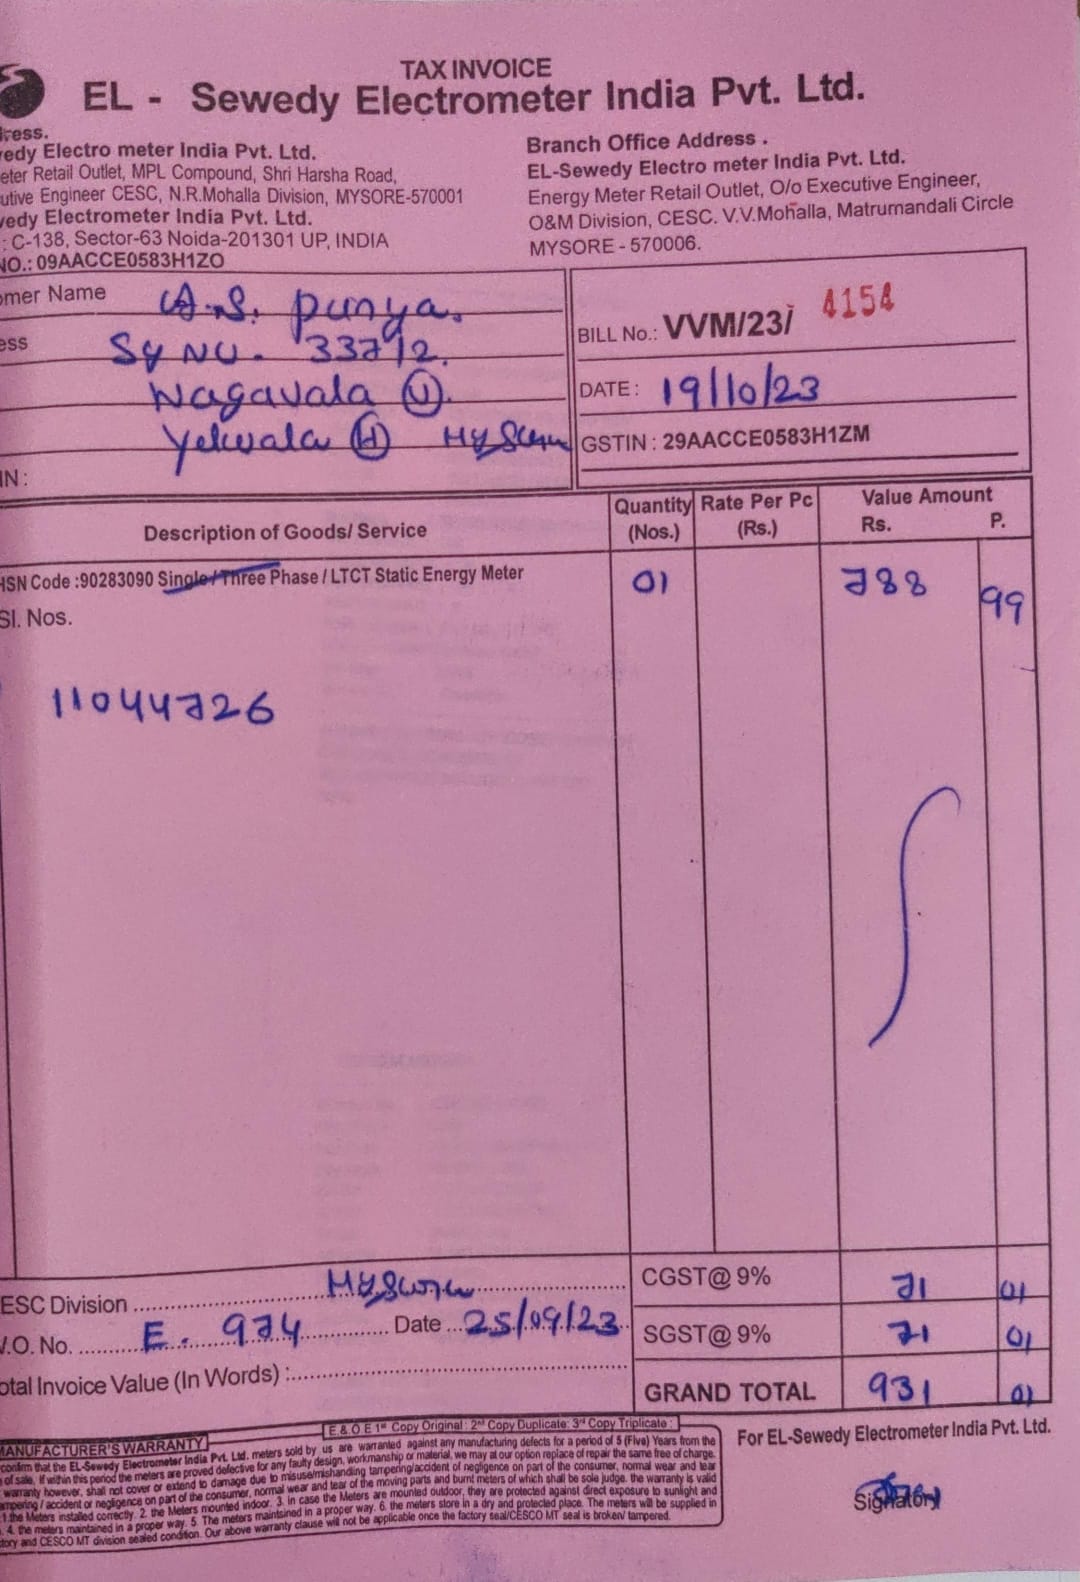 TAX INVOICE
EL - Sewedy Electrometer India Pvt. Ltd.
ress.
edy Electro meter India Pvt. Ltd.
eter Retail Outlet, MPL Compound, Shri Harsha Road,
utive Engineer CESC, N.R.Mohalla Division, MYSORE-570001
vedy Electrometer India Pvt. Ltd.
: C-138, Sector-63 Noida-201301 UP, INDIA
NO.: 09AACCE0583H1ZO
Branch Office Address .
EL-Sewedy Electro meter India Pvt. Ltd.
Energy Meter Retail Outlet, O/o Executive Engineer,
O&M Division, CESC. V.V.Mohalla, Matrumandali Circle
MYSORE - 570006.
omer Name A.S. Punya.
ess Sy NO. 337/2.
Nagavala (V).
Yelwala (H) Mysore
IN :
BILL No.: VVM/23/ 4154
DATE : 19/10/23
GSTIN : 29AACCE0583H1ZM
Description of Goods/ Service Quantity (Nos.) Rate Per Pc (Rs.) Value Amount Rs. P.
HSN Code :90283090 Single / Three Phase / LTCT Static Energy Meter 01 788 99
Sl. Nos.
11044726
ESC Division Mysore
.O. No. E. 974 Date 25/09/23
otal Invoice Value (In Words) :
CGST@ 9% 71 01
SGST@ 9% 71 01
GRAND TOTAL 931 01
E.& O.E 1st Copy Original : 2nd Copy Duplicate: 3rd Copy Triplicate :
MANUFACTURER'S WARRANTY
confirm that the EL-Sewedy Electrometer India Pvt. Ltd, meters sold by us are warranted against any manufacturing defects for a period of 5 (Five) Years from the
of sale, if within this period the meters are proved defective for any faulty design, workmanship or material, we may at our option replace of repair the same free of charge.
warranty however, shall not cover or extend to damage due to misuse/mishandling tampering/accident of negligence on part of the consumer, normal wear and tear
mpering / accident or negligence on part of the consumer, normal wear and tear of the moving parts and burnt meters of which shall be sole judge. the warranty is valid
1.the Meters installed correctly. 2. the Meters mounted indoor. 3. in case the Meters are mounted outdoor, they are protected against direct exposure to sunlight and
. 4. the meters maintained in a proper way. 5. The meters maintsined in a proper way. 6. the meters store in a dry and protected place. The meters will be supplied in
tory and CESCO MT division sealed condition. Our above warranty clause will not be applicable once the factory seal/CESCO MT seal is broken/ tampered.
For EL-Sewedy Electrometer India Pvt. Ltd.
Signatory